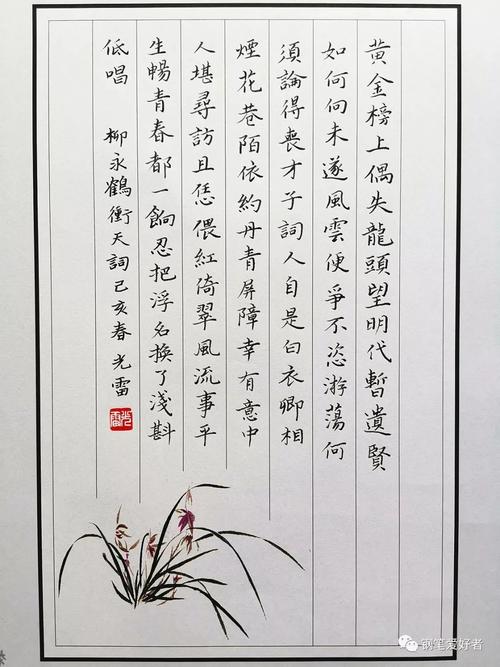 黃金榜上偶失龍頭望明代暫遺賢
如何向未遂風雲便爭不恣游蕩何
須論得喪才子詞人自是白衣卿相
煙花巷陌依約丹青屏障幸有意中
人堪尋訪且恁偎紅倚翠風流事平
生暢青春都一餉忍把浮名換了淺斟
低唱 柳永鶴衝天詞己亥春光雷
光雷
钢笔爱好者